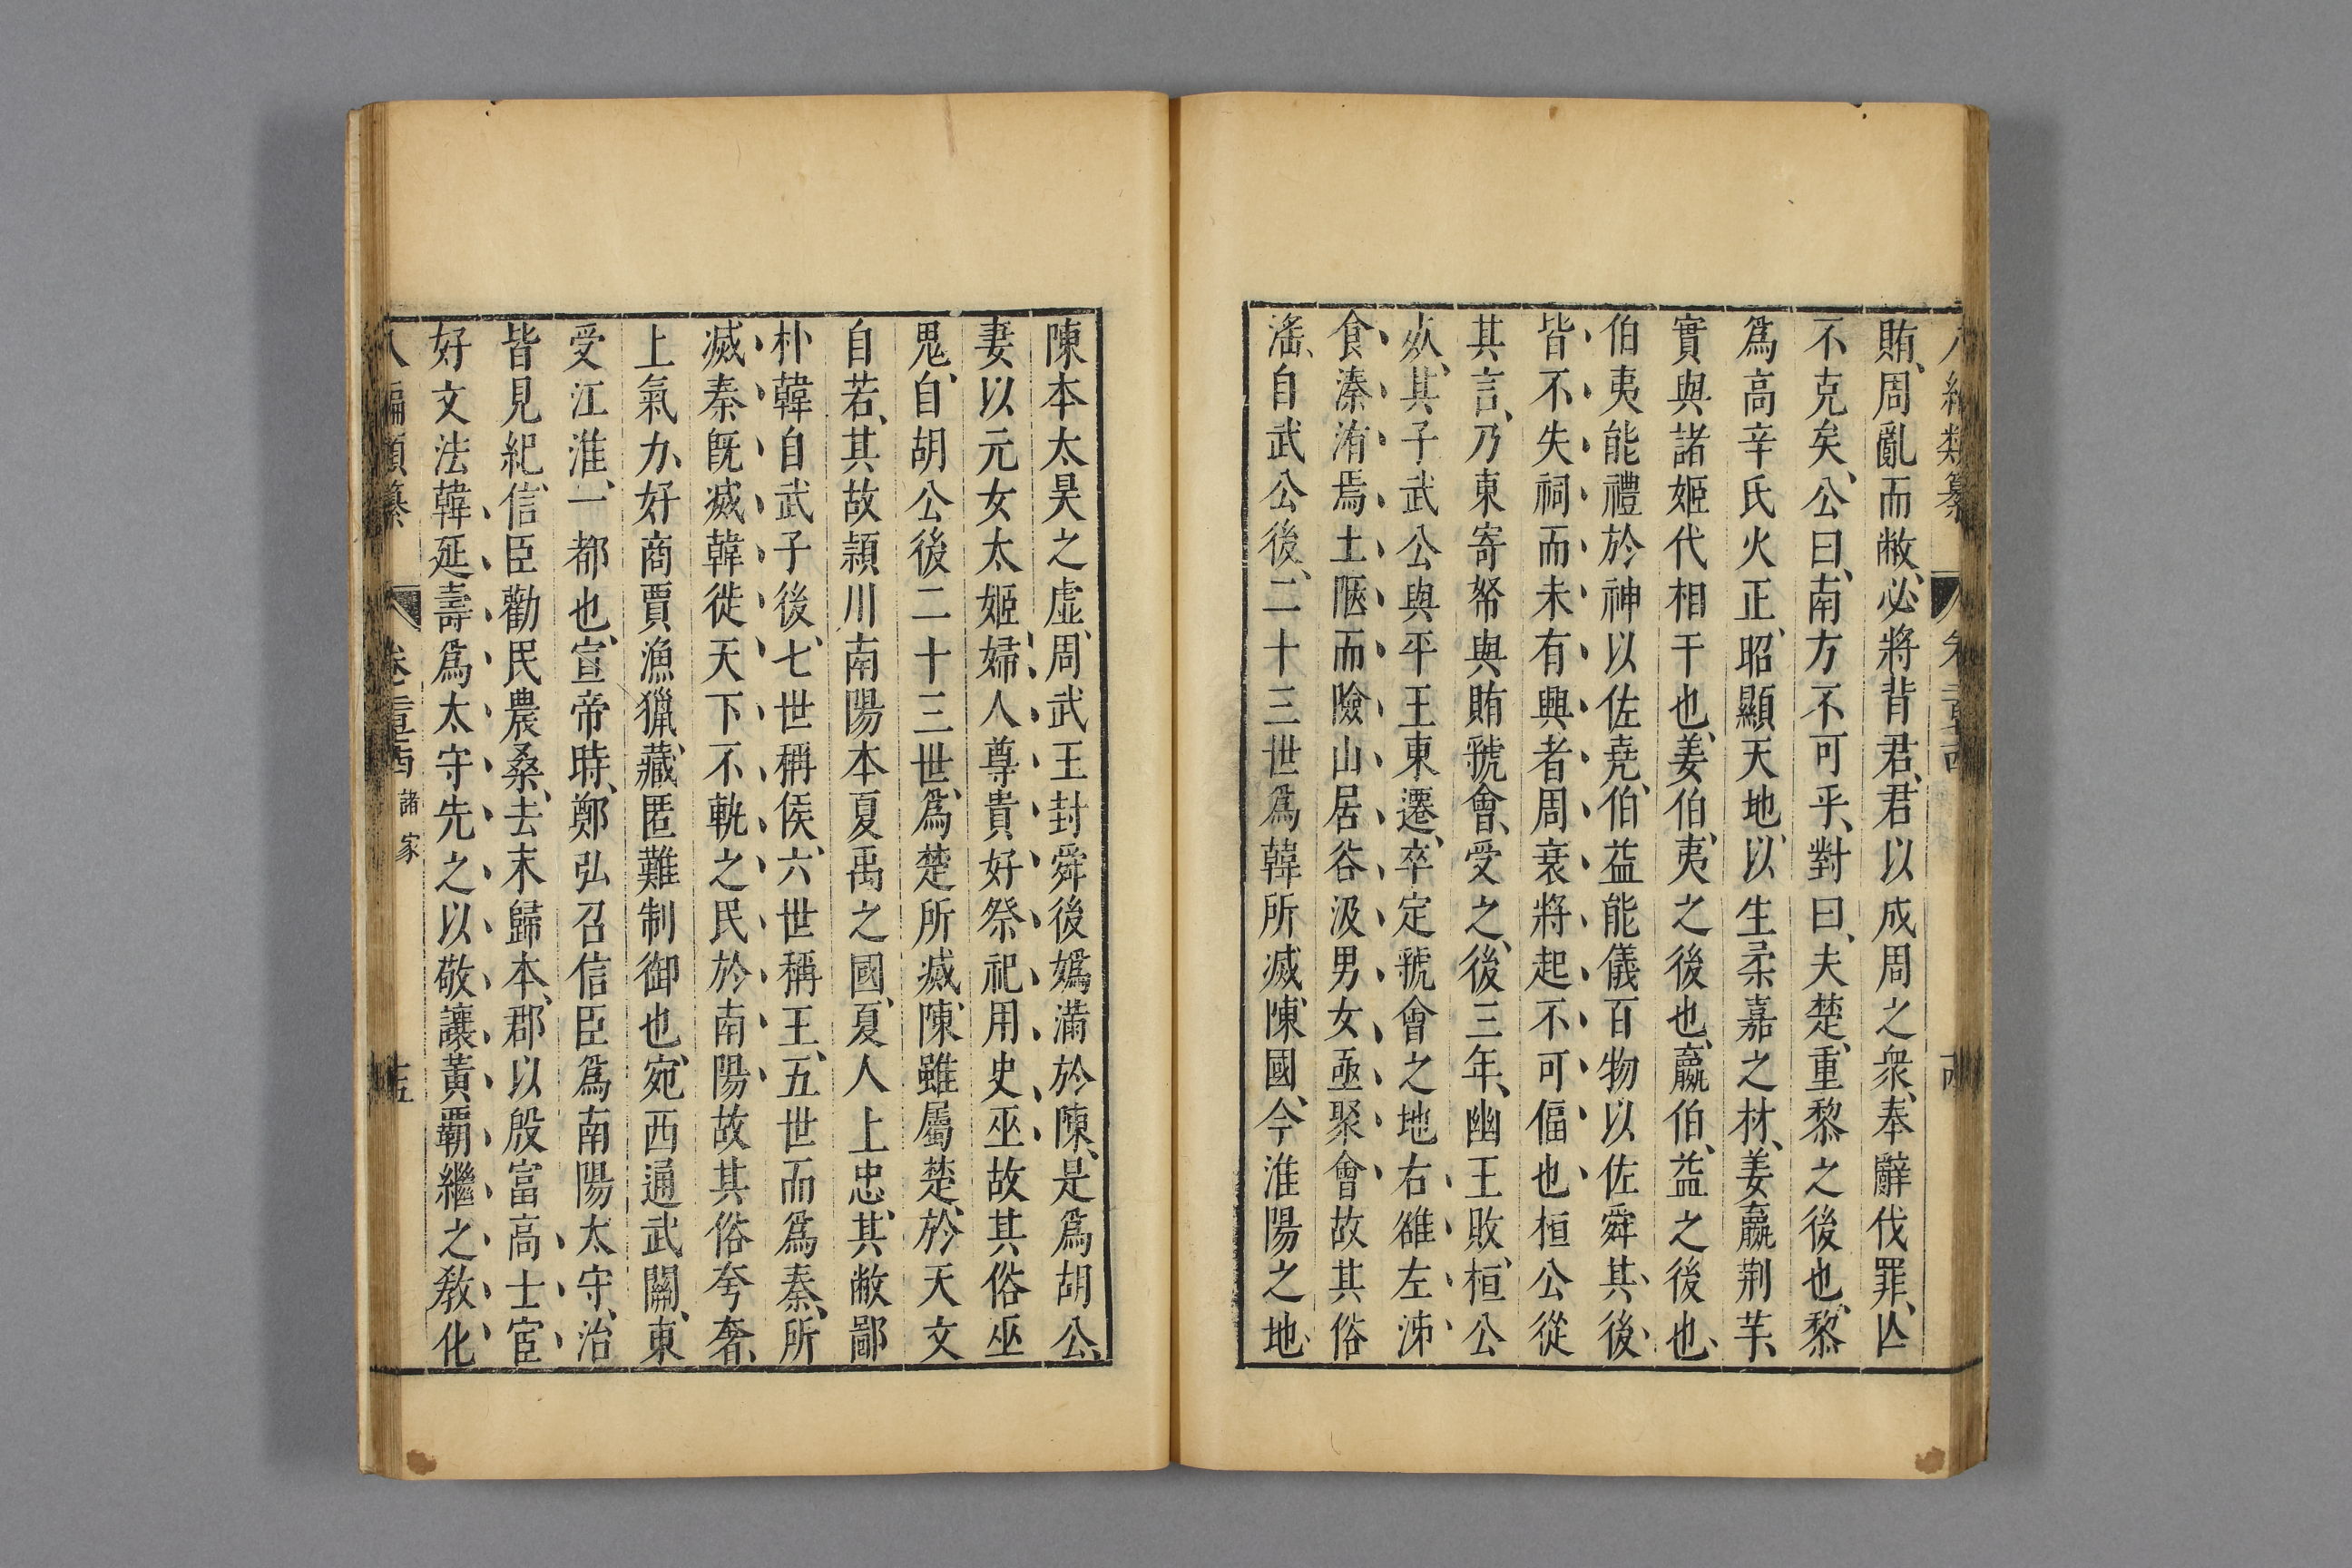 賄、周亂而敝、必將背君、君以成周之衆、奉辭伐罪、亾
不克矣、公曰、南方不可乎、對曰、夫楚、重黎之後也、黎
爲高辛氏火正、昭顯天地、以生柔嘉之材、姜嬴荆芊、
實與諸姬代相干也、姜、伯夷之後也、嬴、伯益之後也、
伯夷能禮於神以佐堯、伯益能儀百物以佐舜、其後
皆不失祠而未有興者周衰將起不可偪也桓公從
其言、乃東寄帑與賄、虢會受之、後三年、幽王敗、桓公
㱔、其子武公與平王東遷、卒定虢會之地右雒左泲
食溱洧焉土陿而險山居谷汲男女亟聚會故其俗
滛、自武公後、二十三世爲韓所㓕、陳國、今淮陽之地、
陳本太昊之虛、周武王封舜後嬀滿於陳、是爲胡公、
妻以元女太姬、婦人尊貴好祭祀用史巫故其俗巫
鬼、自胡公後二十三世、爲楚所㓕、陳雖屬楚、於天文
自若、其故潁川南陽本夏禹之國、夏人上忠、其敝鄙
朴韓自武子後、七世稱侯、六世稱王、五世而爲秦、所
㓕秦旣㓕韓徙天下不軌之民於南陽故其俗夸奢、
上氣力、好商賈漁獵、藏匿難制御也、宛西通武關、東
受江淮、一都也、宣帝時、鄭弘召信臣爲南陽太守、治
皆見紀、信臣勸民農桑、去末歸本、郡以殷富高士宦
好文法韓延壽爲太守先之以敬讓黃覇繼之敎化
編類纂 卷 諸家